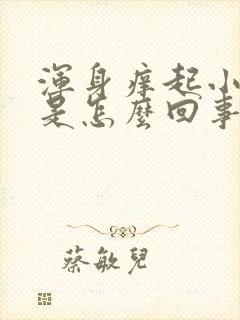 渾身痒起小
是怎麼回事
蔡敏兒